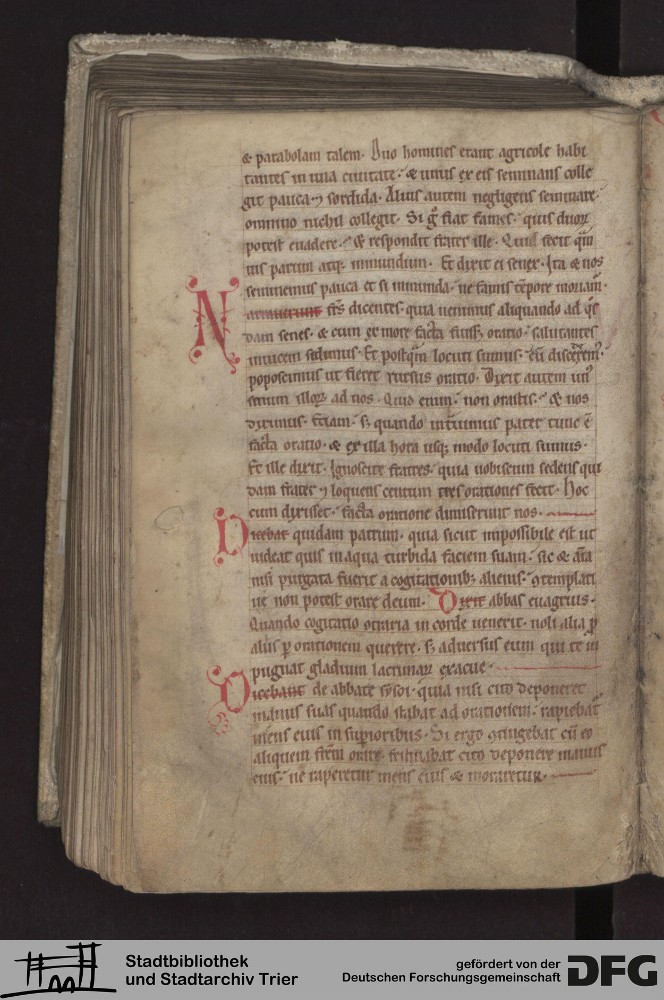 & parabolam talem. Duo homines erant agricole habi
tantes in una ciuitate. & unus ex eis seminans colle
git pauca ⁊ sordida. Alius autem negligens seminare.
omnino nichil collegit. Si gͦ fiat fames. quis duoꝝ
potest euadere. & respondit frater ille. Quid fecit qm̄
uis parum atqꝫ inmundum. Et dixit ei senex. Ita & nos
seminemus pauca et si inmunda. ne famis tēpore moriam̄.
Narrauerunt frs̄ dicentes. quia uenimus aliquando ad qͦs
dam senes. & cum ex more facta fuiss& oratio. salutantes
inuicem sedimus. Et postqm̄ locuti sumus. cū discederem̄.
poposcimus ut fieret rursus oratio. Dixit autem unꝰ
senum illoꝝ ad nos. Quid enim. non orastis. & nos
diximus. Etiam. sꝫ quando intrauimus pater tunc ē
facta oratio. & ex illa hora usqꝫ modo locuti sumus.
Et ille dixit. Ignoscite fratres. quia uobiscum sedens qui
dam frater ⁊ loquens centum tres orationes fecit. Hoc
cum dixisset. facta oratione dimiserunt nos.
Dicebat quidam patrum. quia sicut impossibile est ut
uideat quis in aqua turbida faciem suam. sic & aīa
nisi purgata fuerit a cogitationibꝫ alienis. ꝯtemplati
ue non potest orare deum. Dixit abbas euagrius.
Quando cogitatio ̄traria in corde uenerit. noli alia ꝓ
aliis ꝑ orationem querere. sꝫ aduersus eum qui te in
pugnat gladium lacrimaꝝ exacue.
Dicebant de abbate sysoi. quia nisi cito deponeret
manus suas quando stabat ad orationem. rapiebat̄
mens eius in supioribus. Si ergo ꝯtingebat cū eo
aliquem frēm orare. festinabat cito deponere manus
eius. ne raperetur mens eius & moraretur.
Stadtbibliothek
und Stadtarchiv Trier
gefördert von der
Deutschen Forschungsgemeinschaft
DFG